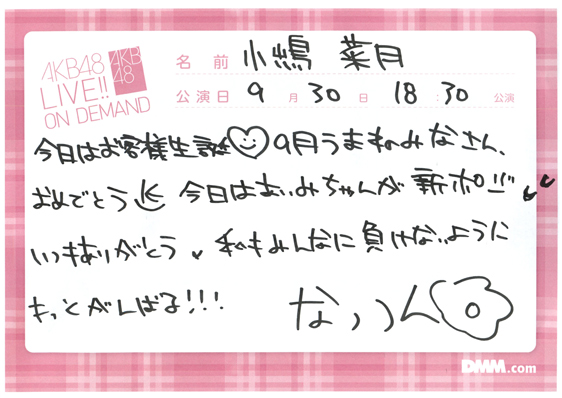 AKB48
LIVE!!
ON DEMAND
AKB
48
名前 小嶋 菜月
公演日 9月30日 18:30 公演
今日はお客様生誕♡9月うまれのみなさん、
おめでとう 今日はあいみちゃんが新ポジ!!
いつもありがとう 私もみんなに負けないように
もっとがんばる!!!
なっつん
DMM.com